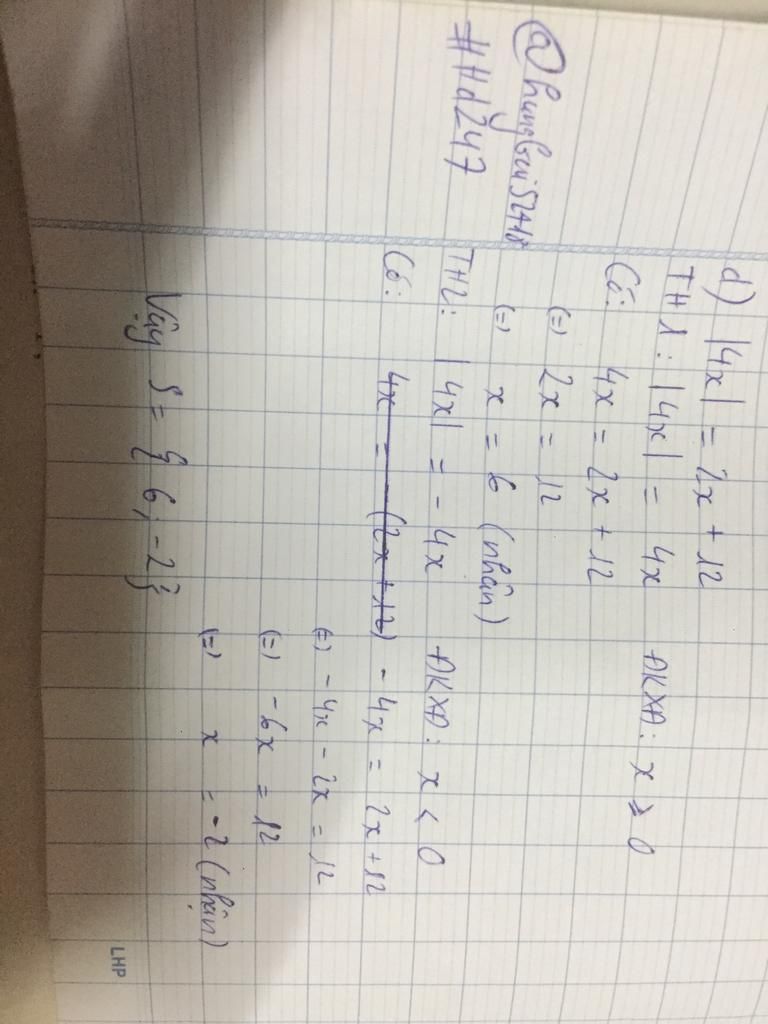 @hungbui52+18
#Hd247
d) |4x| = 2x + 12
TH1: |4x| = 4x ĐKXĐ: x ⩾ 0
Có: 4x = 2x + 12
(=) 2x = 12
(=) x = 6 (nhận)
TH2: |4x| = -4x ĐKXĐ: x < 0
Có: 4x = -(2x+12) -4x = 2x+12
(=) -4x - 2x = 12
(=) -6x = 12
(=) x = -2 (nhận)
Vậy S = { 6; -2 }
LHP